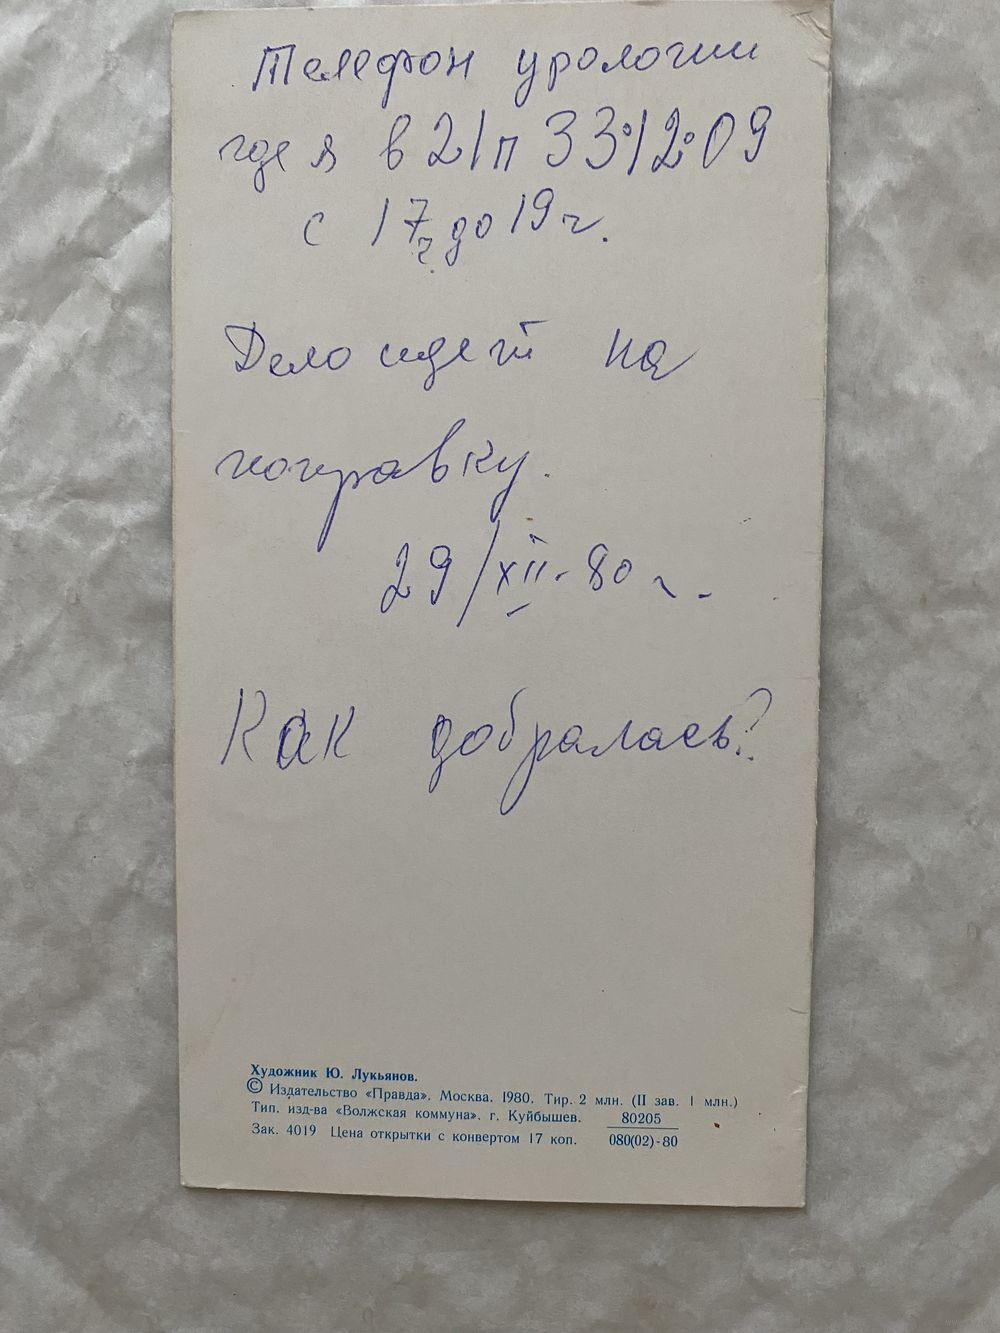 Телефон урологии
где я в 21п 33:12:09
с 17ч. до 19 ч.
Дело идет на
поправку.
29/XII-80 г.
Как добралась?
Художник Ю. Лукьянов.
© Издательство «Правда». Москва. 1980. Тир. 2 млн. (II зав. 1 млн.)
Тип. изд-ва «Волжская коммуна». г. Куйбышев.
80205
Зак. 4019 Цена открытки с конвертом 17 коп.
080(02)-80